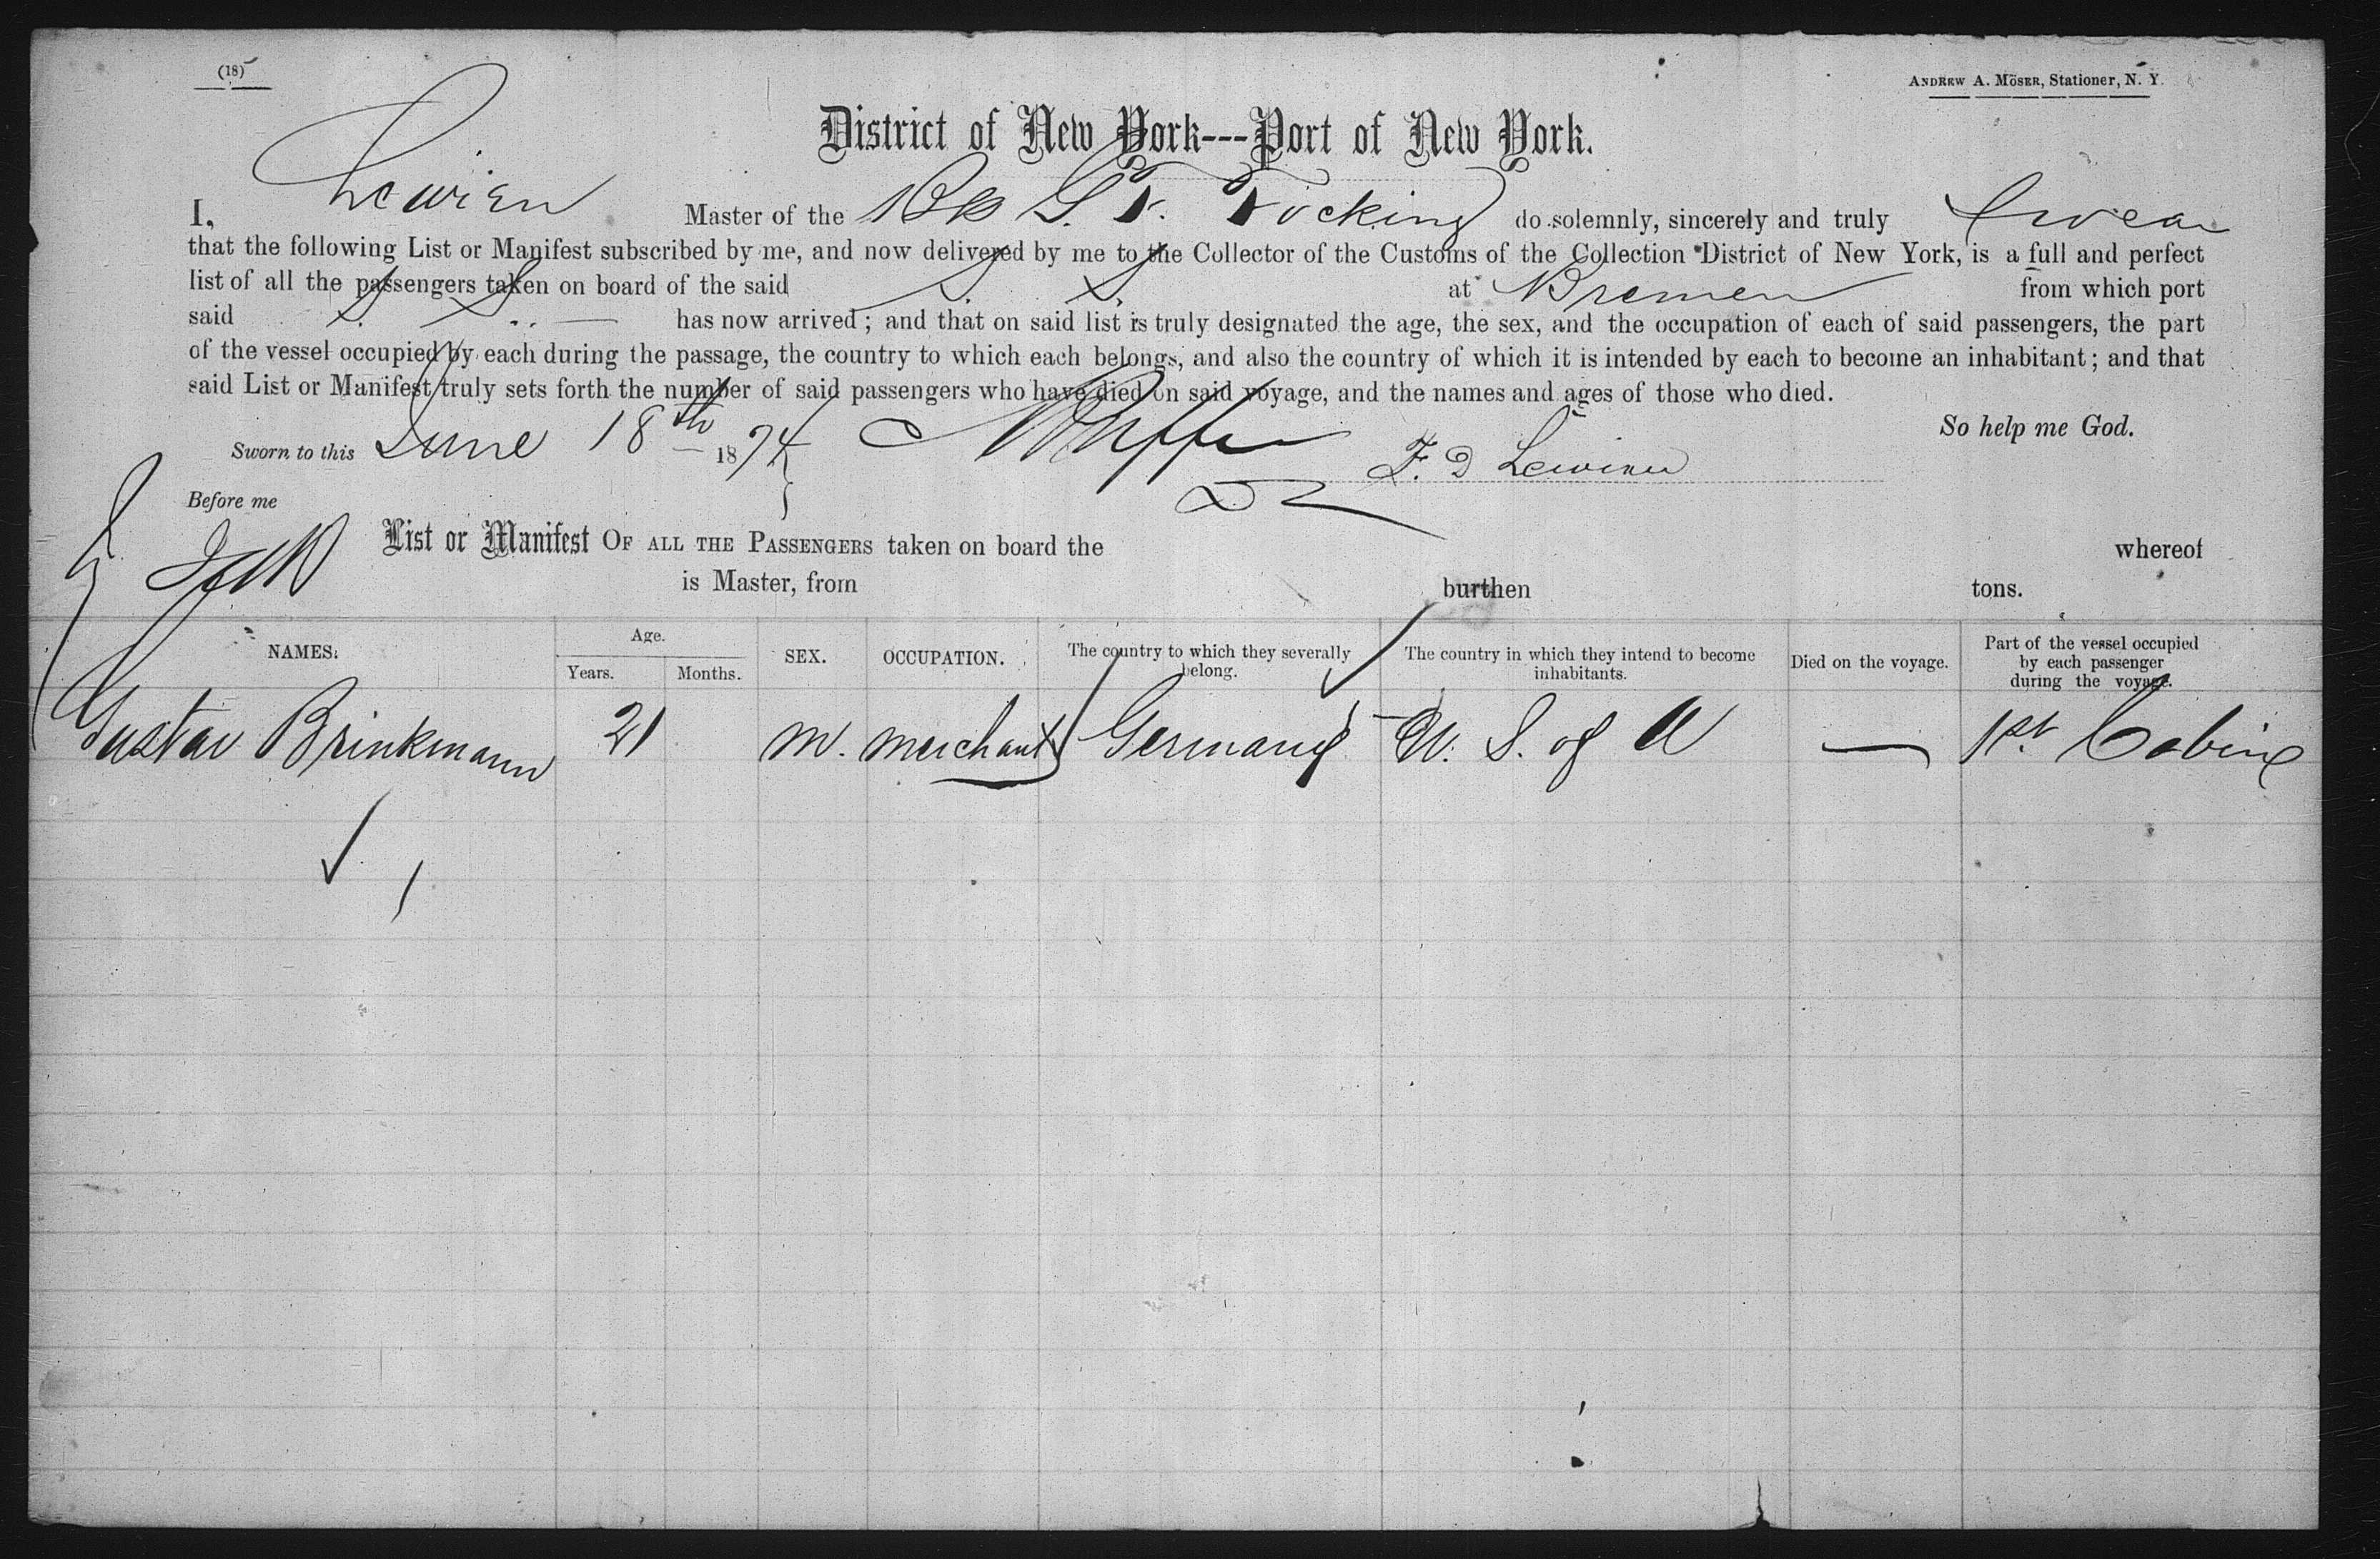 (18)
ANDREW A. MÖSER, Stationer, N. Y.
District of New York---Port of New York.
I, Lewien Master of the Bk S. F. Focking do solemnly, sincerely and truly swear
that the following List or Manifest subscribed by me, and now delivered by me to the Collector of the Customs of the Collection District of New York, is a full and perfect
list of all the passengers taken on board of the said at Bremen from which port
said has now arrived; and that on said list is truly designated the age, the sex, and the occupation of each of said passengers, the part
of the vessel occupied by each during the passage, the country to which each belongs, and also the country of which it is intended by each to become an inhabitant; and that
said List or Manifest truly sets forth the number of said passengers who have died on said voyage, and the names and ages of those who died.
So help me God.
Sworn to this June 18th 1874
F. D Lewien
Before me
List or Manifest OF ALL THE PASSENGERS taken on board the whereof
is Master, from burthen tons.
NAMES. Age. Years. Months. SEX. OCCUPATION. The country to which they severally belong. The country in which they intend to become inhabitants. Died on the voyage. Part of the vessel occupied by each passenger during the voyage.
Gustav Brinkmann 21 m. merchant Germany U. S. of A — 1st. Cabin